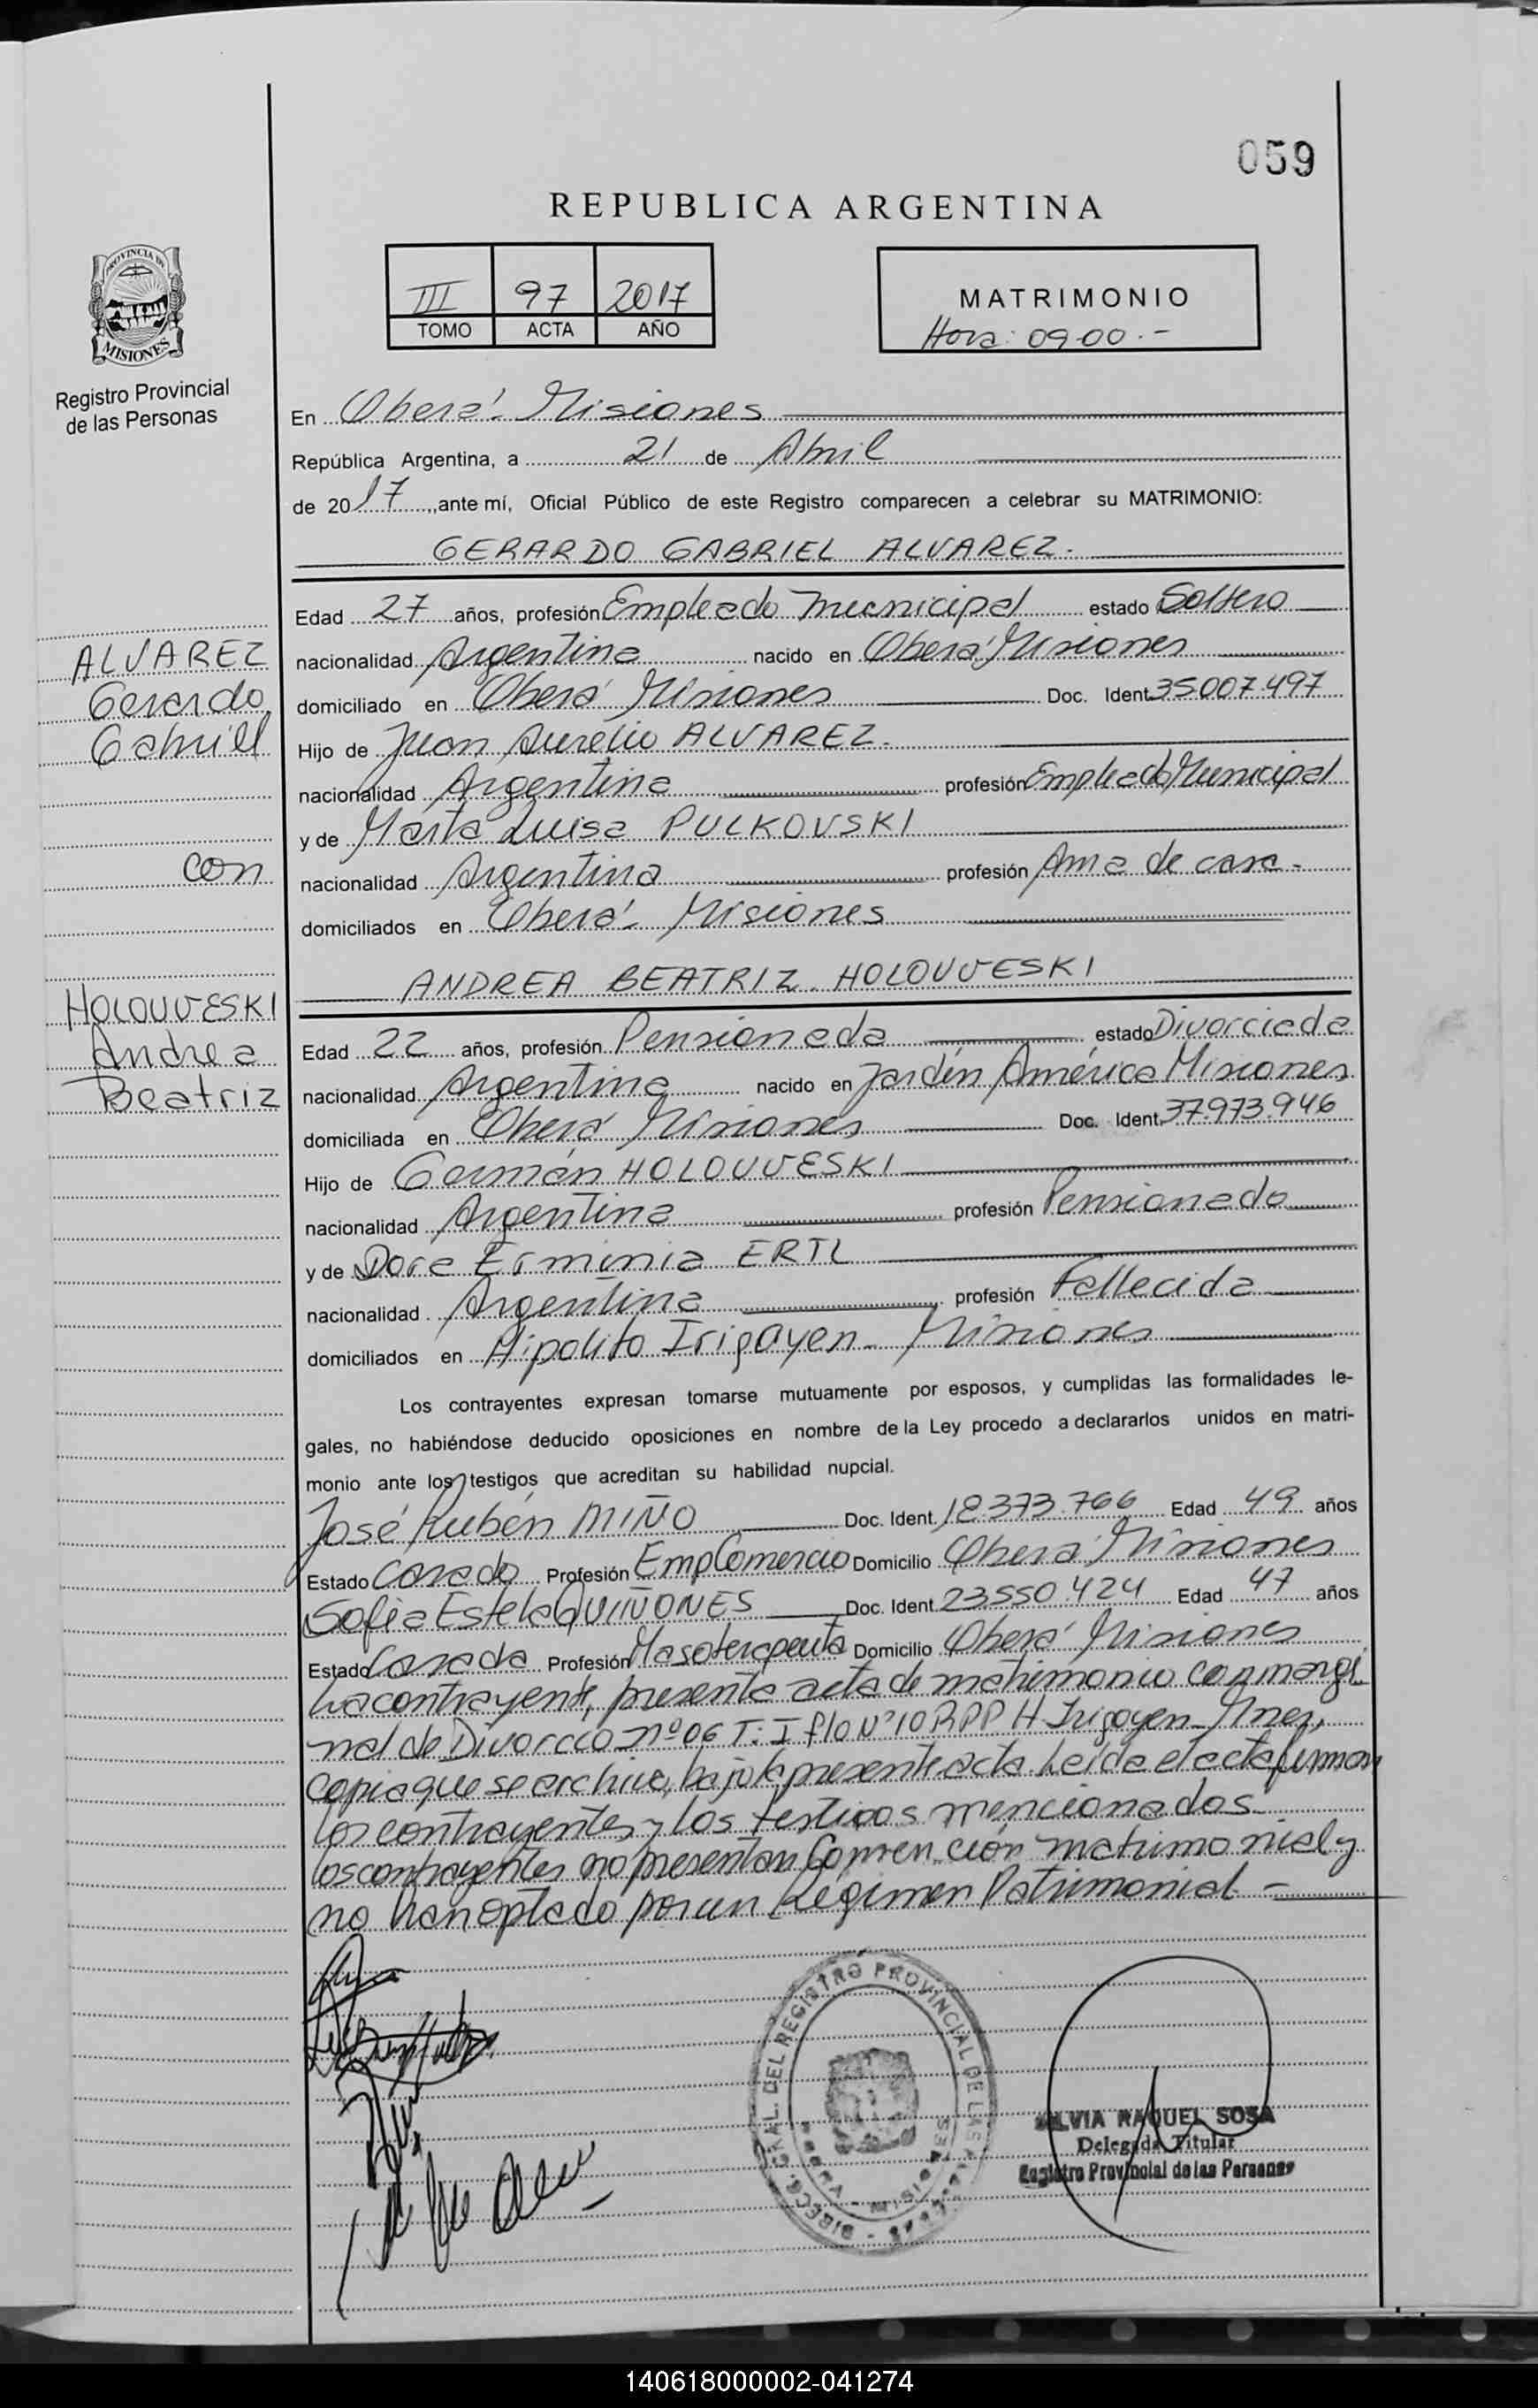 059
REPUBLICA ARGENTINA
PROVINCIA DE
MISIONES
Registro Provincial
de las Personas
III 97 2017
TOMO ACTA AÑO
MATRIMONIO
Hora: 09.00.-
En Oberá - Misiones
República Argentina, a 21 de Abril
de 2017, ante mí, Oficial Público de este Registro comparecen a celebrar su MATRIMONIO:
GERARDO GABRIEL ALVAREZ.
Edad 27 años, profesión Empleado Municipal estado Soltero
ALVAREZ
nacionalidad Argentina nacido en Oberá Misiones
Gerardo
domiciliado en Oberá Misiones Doc. Ident. 35.007.497
Gabriel
Hijo de Juan Aurelio ALVAREZ.
nacionalidad Argentina profesión Empleado Municipal
y de Marta Luisa PULKOVSKI
con
nacionalidad Argentina profesión Ama de casa -
domiciliados en Oberá - Misiones
ANDREA BEATRIZ HOLOUVESKI
HOLOUVESKI
Andrea
Edad 22 años, profesión Pensionada estado Divorciada
Beatriz
nacionalidad Argentina nacido en Jardín América Misiones
domiciliada en Oberá Misiones Doc. Ident. 37.973.946
Hijo de Germán HOLOUVESKI
nacionalidad Argentina profesión Pensionado
y de Dora Erminia ERTL
nacionalidad Argentina profesión Fallecida
domiciliados en Hipolito Irigoyen - Misiones
Los contrayentes expresan tomarse mutuamente por esposos, y cumplidas las formalidades le-
gales, no habiéndose deducido oposiciones en nombre de la Ley procedo a declararlos unidos en matri-
monio ante los testigos que acreditan su habilidad nupcial.
José Rubén MIÑO Doc. Ident. 18.373.766 Edad 49 años
Estado Casado Profesión Emp Comercio Domicilio Oberá Misiones
Sofia Estela QUIÑONES Doc. Ident. 23.550.424 Edad 47 años
Estado Casada Profesión Masoterapeuta Domicilio Oberá Misiones
La contrayente, presenta acta de matrimonio con margi
nal de Divorcio nº 06 T: I flo Nº 10 RPP H Irigoyen - Mnes,
copia que se archiva, bajo la presente acta. Leída el acta firman
los contrayentes y los testigos mencionados
los contrayentes no presentan Convención matrimonial y
no han optado por un Régimen Patrimonial -
DIRECC. GRAL. DEL REGISTRO PROVINCIAL DE LAS
MISIONES
SILVIA RAQUEL SOSA
Delegada Titular
Registro Provincial de las Personas
140618000002-041274